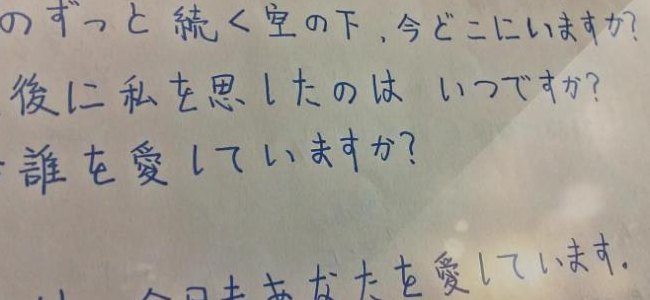 のずっと続く空の下、今どこにいますか?
後に私を思したのは いつですか?
誰を愛していますか?
今日もあなたを愛しています.